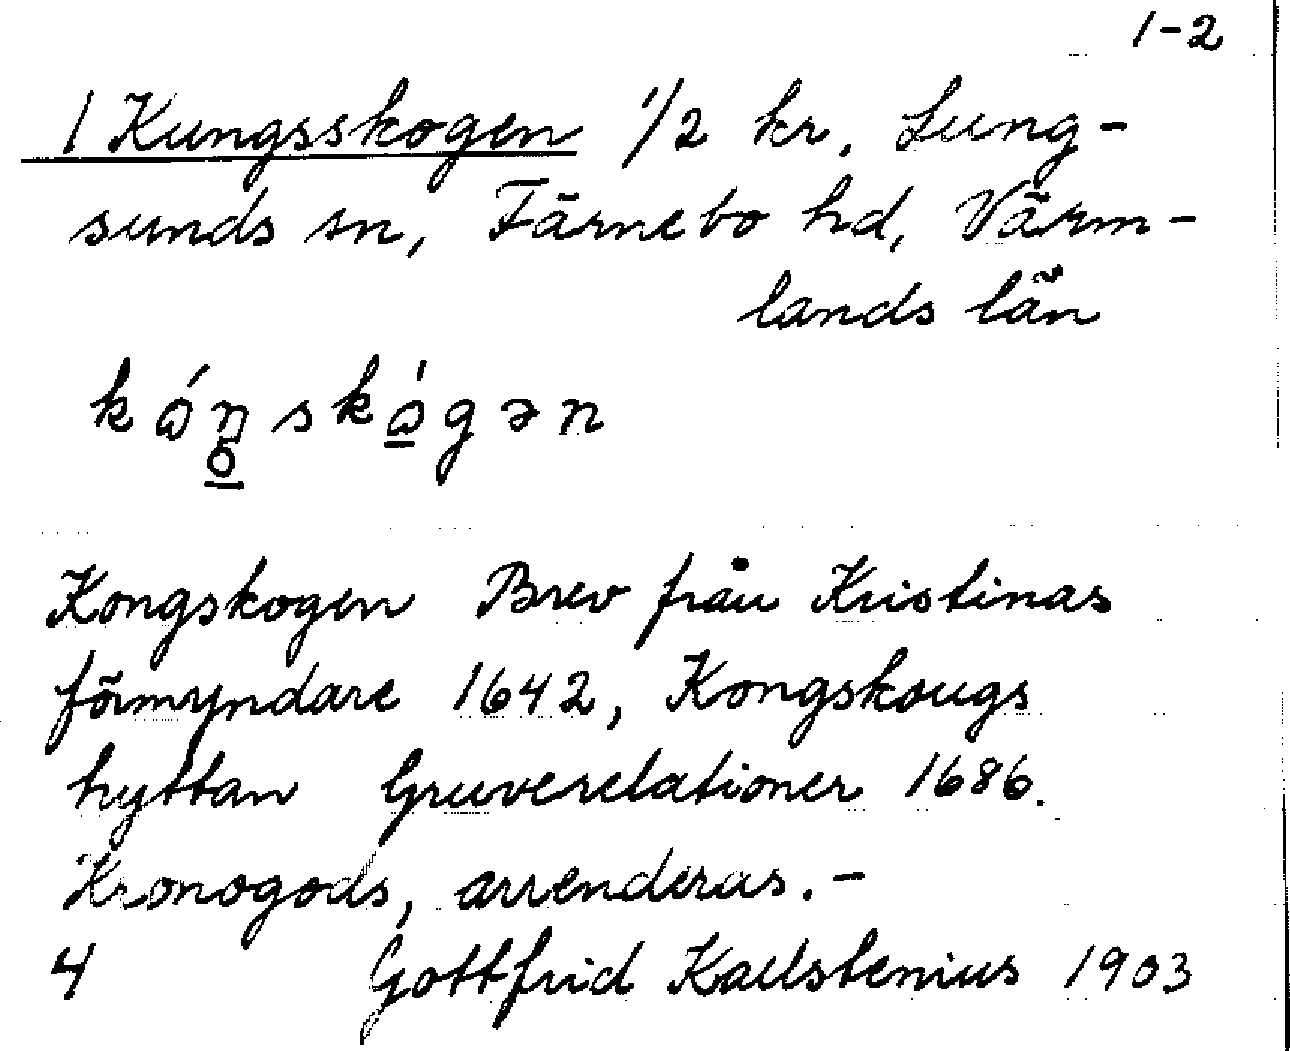 1-2
1 Kungsskogen 1/2 kr, Lung-
sunds sn, Färnebo hd, Värm-
lands län
kóŋskógən
o
Kongskogen Brev från Kristinas
förmyndare 1642, Kongskougs
hyttan Gruverelationer 1686.
Kronogods, arrenderas.-
4 Gottfrid Kallstenius 1903